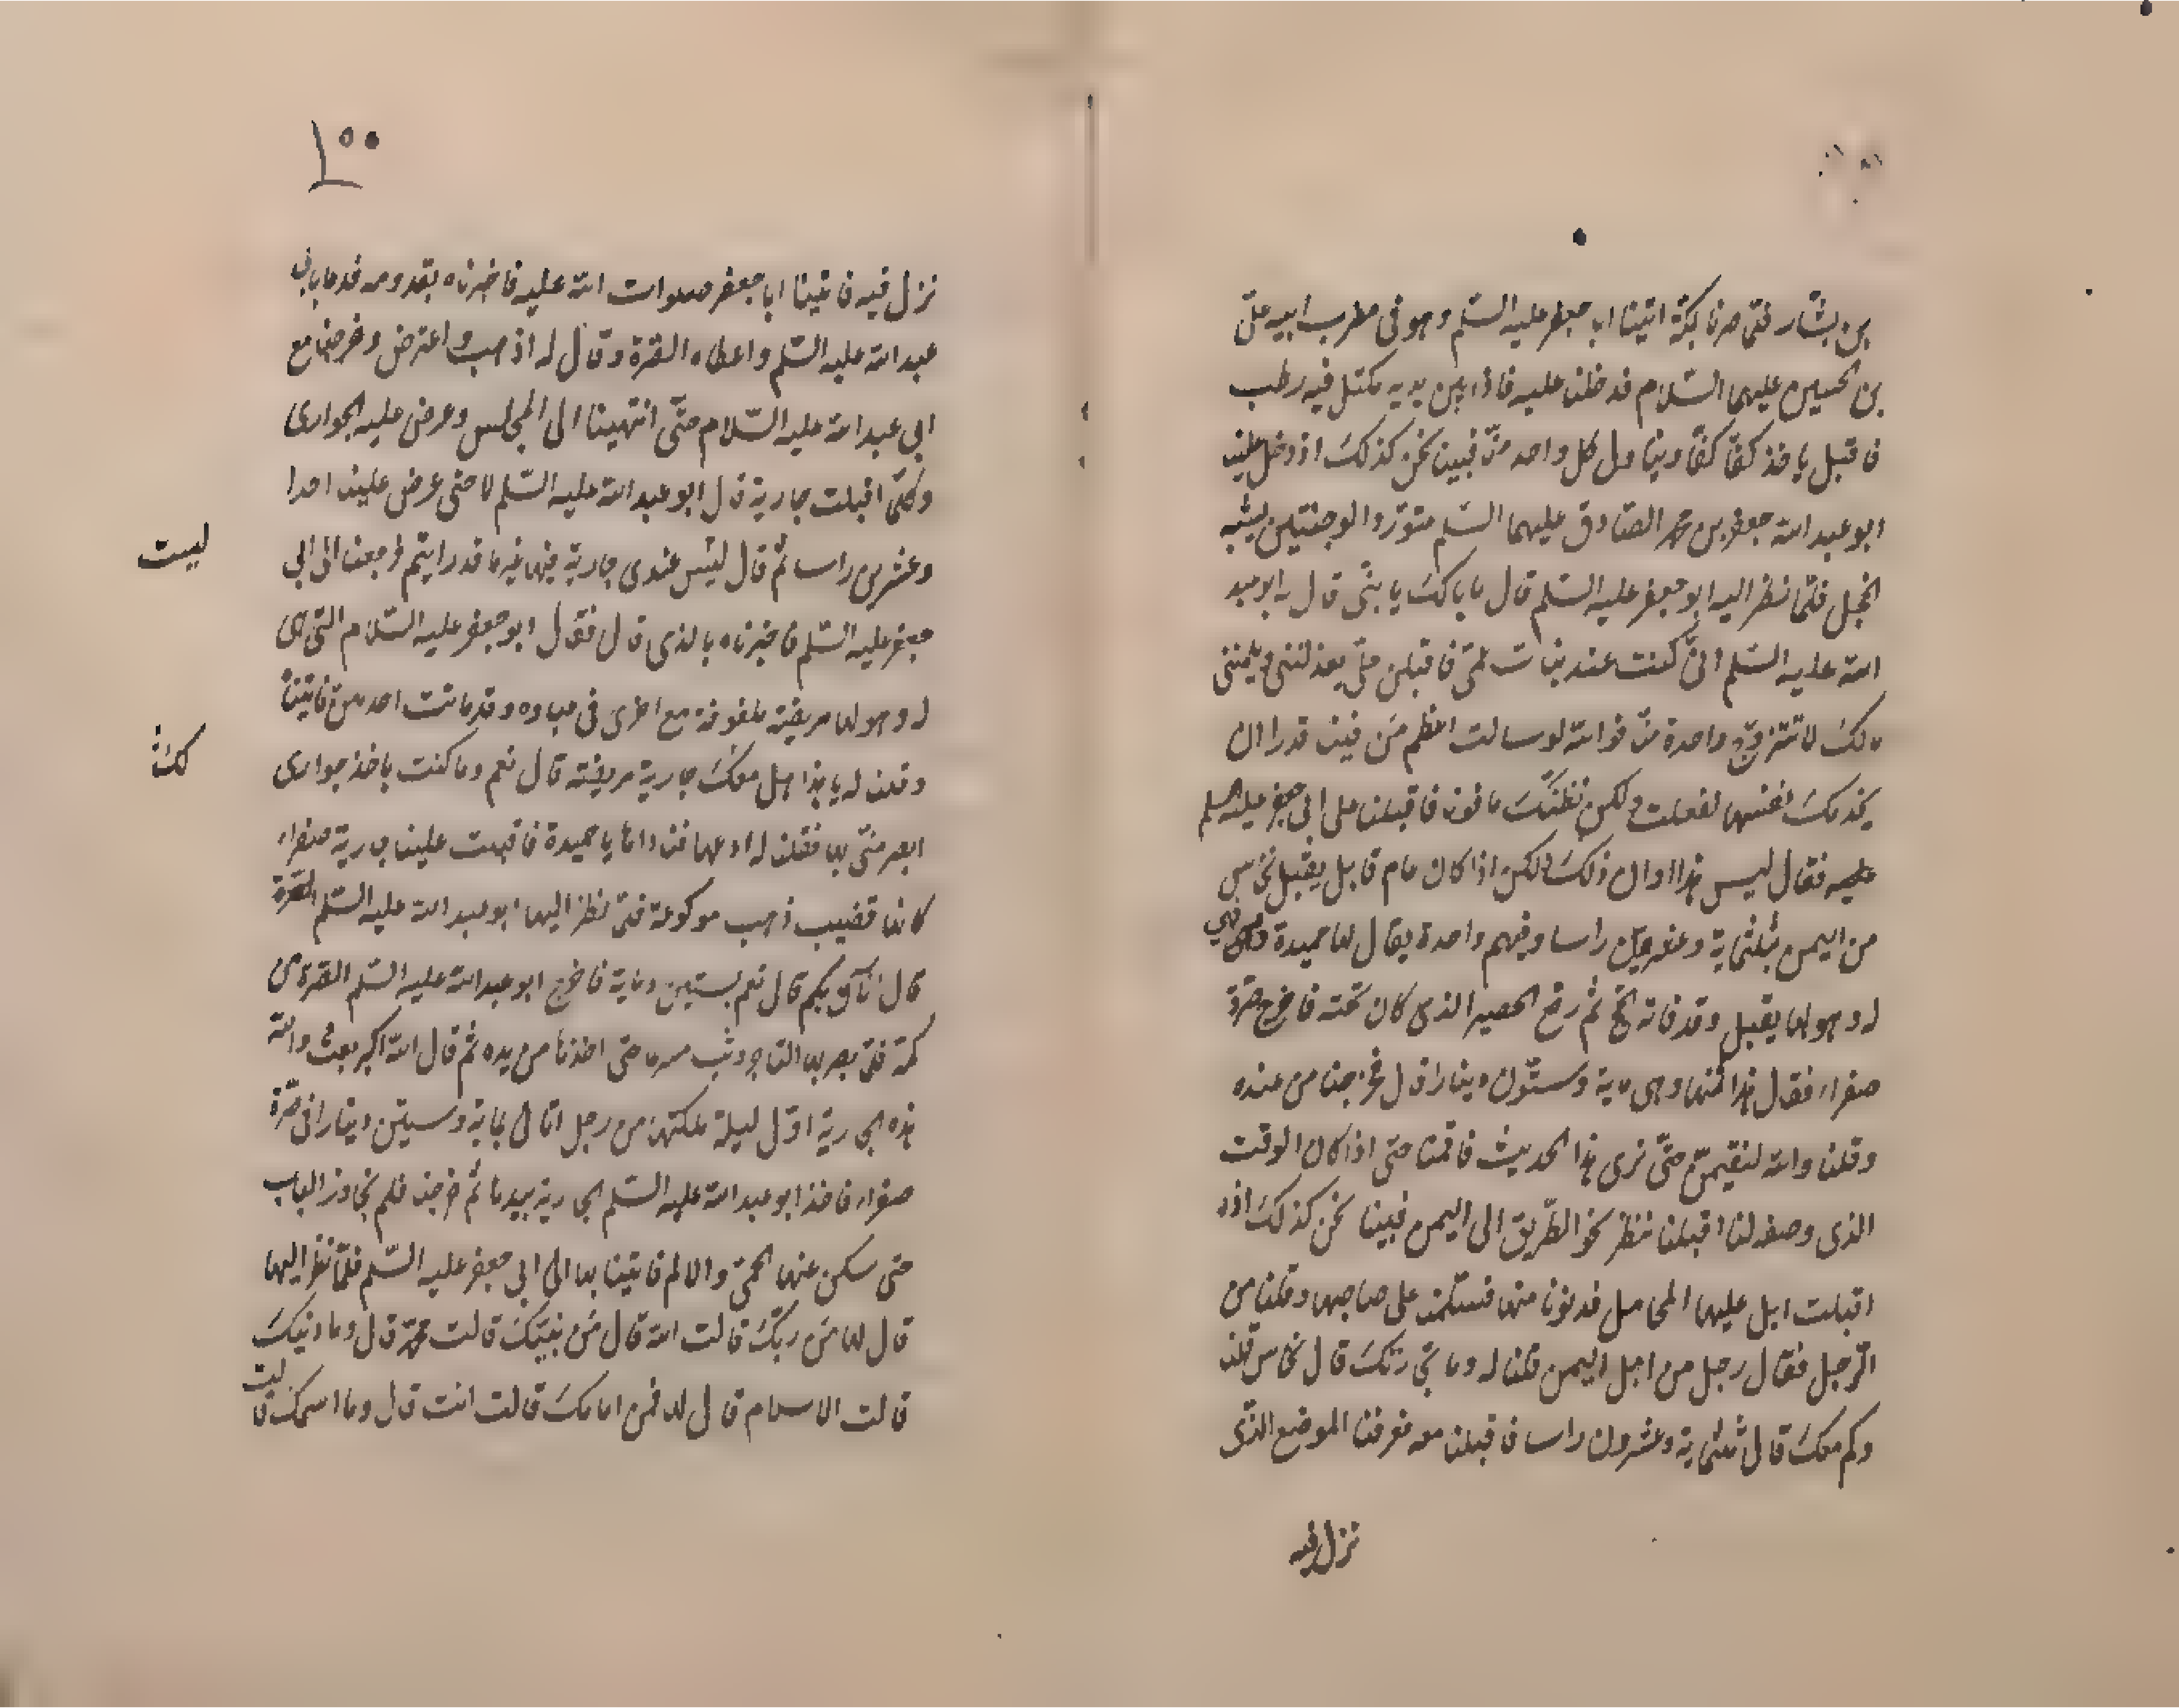 بن بشار فلما صرنا بمكة اتينا ابا جعفر عليه السلم وهو فى مضرب ابيه على
بن الحسين عليهما السلام فدخلنا عليه فاذا بين يديه مكتل فيه رطب
فاقبل ياخذ كفّا كفّا ويناول كل واحد منّا فبينا نحن كذلك اذ دخل علينا
ابو عبد الله جعفر بن محمد الصادق عليهما السلم متورّد الوجنتين يشبه
الخجل فلمّا نظر اليه ابو جعفر عليه السلم قال ما بالك يا بنىّ قال له ابو عبد
الله عليه السلم انى كنت عند بنات عمّى فاقبلن علىّ يعذلننى ويلمننى
مالك لا تتزوّج واحدة منّا فوالله لو سالت اعظم من فينا قدرا ان
يخدمك نفسها لفعلت ولكن نظنّك مافونا فاقبلنا على ابى جعفر عليه السلم
عليه فقال ليس هذا اوان ذلك ولكن اذا كان عام قابل يقبل نخاس
من اليمن بثلثماية وعشرين راسا وفيهم واحدة يقال لها حميدة وهى
له وهو لها يقبل وقد فاته الحج ثم رفع الحصير الذى كان تحته فاخرج صرّة
صفراء فقال هذا ثمنها وهى ماية وستّون دينارا قال فخرجنا من عنده
وقلنا والله لنقيمنّ حتّى نرى هذا الحديث فاقمنا حتى اذا كان الوقت
الذى وصفه لنا اقبلنا ننظر نحو الطّريق الى اليمن فبينا نحن كذلك اذا
اقبلت ابل عليها المحامل فدنونا منها فسلّمنا على صاحبها وقلنا من
الرّجل فقال رجل من اهل اليمن قلنا له وما تجارتك قال نخاس قلنا
وكم معك قال ثلثماية وعشرون راسا فاقبلنا معه فعرفنا الموضع الذّى
نزل فيه
١٠٠
نزل فيه فاتينا ابا جعفر صلوات الله عليه فاخبرناه بقدومه فدعا بابى
عبد الله عليه السّلم واعطاه الصّرة وقال له اذهب واعترض وخرجنا مع
ابى عبد الله عليه السّلام حتّى انتهينا الى المجلس وعرض عليه الجوارى
وكلّما اقبلت جارية قال ابو عبد الله عليه السّلم لا حتى عرض علينا احدا
وعشرين راسا ثم قال ليس عندى جارية فيها غير ما قد رايتم فرجعنا الى ابى
ليست
جعفر عليه السّلم فاخبرناه بالذى قال فقال ابو جعفر عليه السّلام التى هى
له وهو لها مريضة ملفوفة مع اخرى فى عباءه وقد ماتت احديهن فاتينا
وقلنا له يا هذا هل معك جارية مريضة قال نعم وما كنت باخذ جوارى
ابصر منّى بها فقلنا له ادعها فناداها يا حميدة فاقبلت علينا جارية صفراء
كانها قضيب ذهب موكوعة فلمّا نظر اليها ابو عبد الله عليه السّلم الصّرة
قال بكم قال نعم بستين وماية فاخرج ابو عبد الله عليه السّلم الصّرة من
كمّه فلمّا بصر بها التاجر وثب مسرعا حتى اخذها من يده ثم قال الله اكبر بعث والله
هذه الجارية اوّل ليلة ملكتها من رجل اتانى بماية وستين دينارا فى صرّة
صفراء فاخذ ابو عبد الله عليه السّلم الجارية بيدها ثم خرجنا فلم نجاوز الباب
حتى سكن عنها الحمّى والالم فاتينا بها الى ابى جعفر عليه السّلم فلمّا نظر اليها
قال لها من ربّك قالت الله قال من نبيّك قالت محمّد قال وما دينك
قالت الاسلام قال لها فمن امامك قالت انت قال وما اسمك قالت